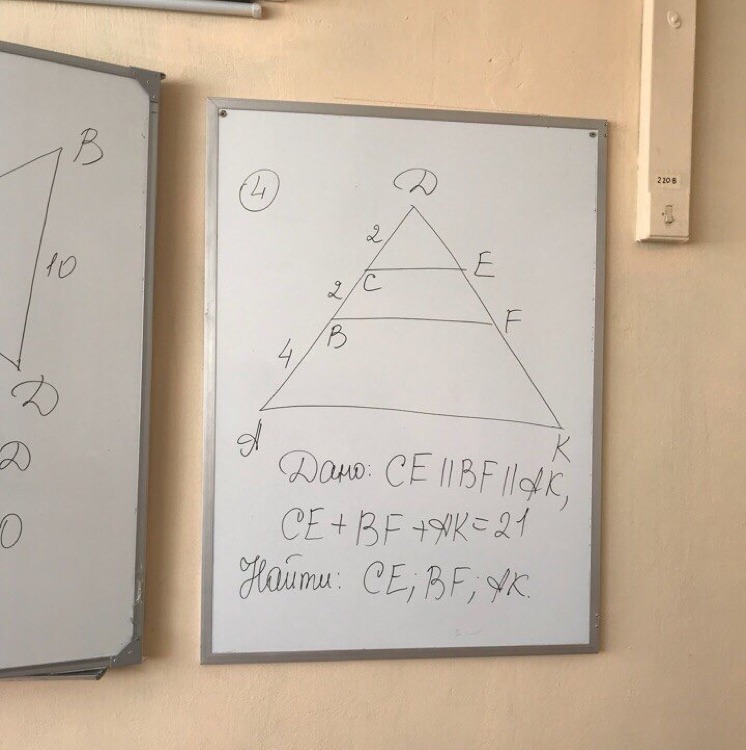 B
10
D
D
0
4
D
2
E
2
C
F
B
4
A
K
Дано: CE || BF || AK,
CE + BF + AK = 21
Найти: CE; BF; AK.
220 В